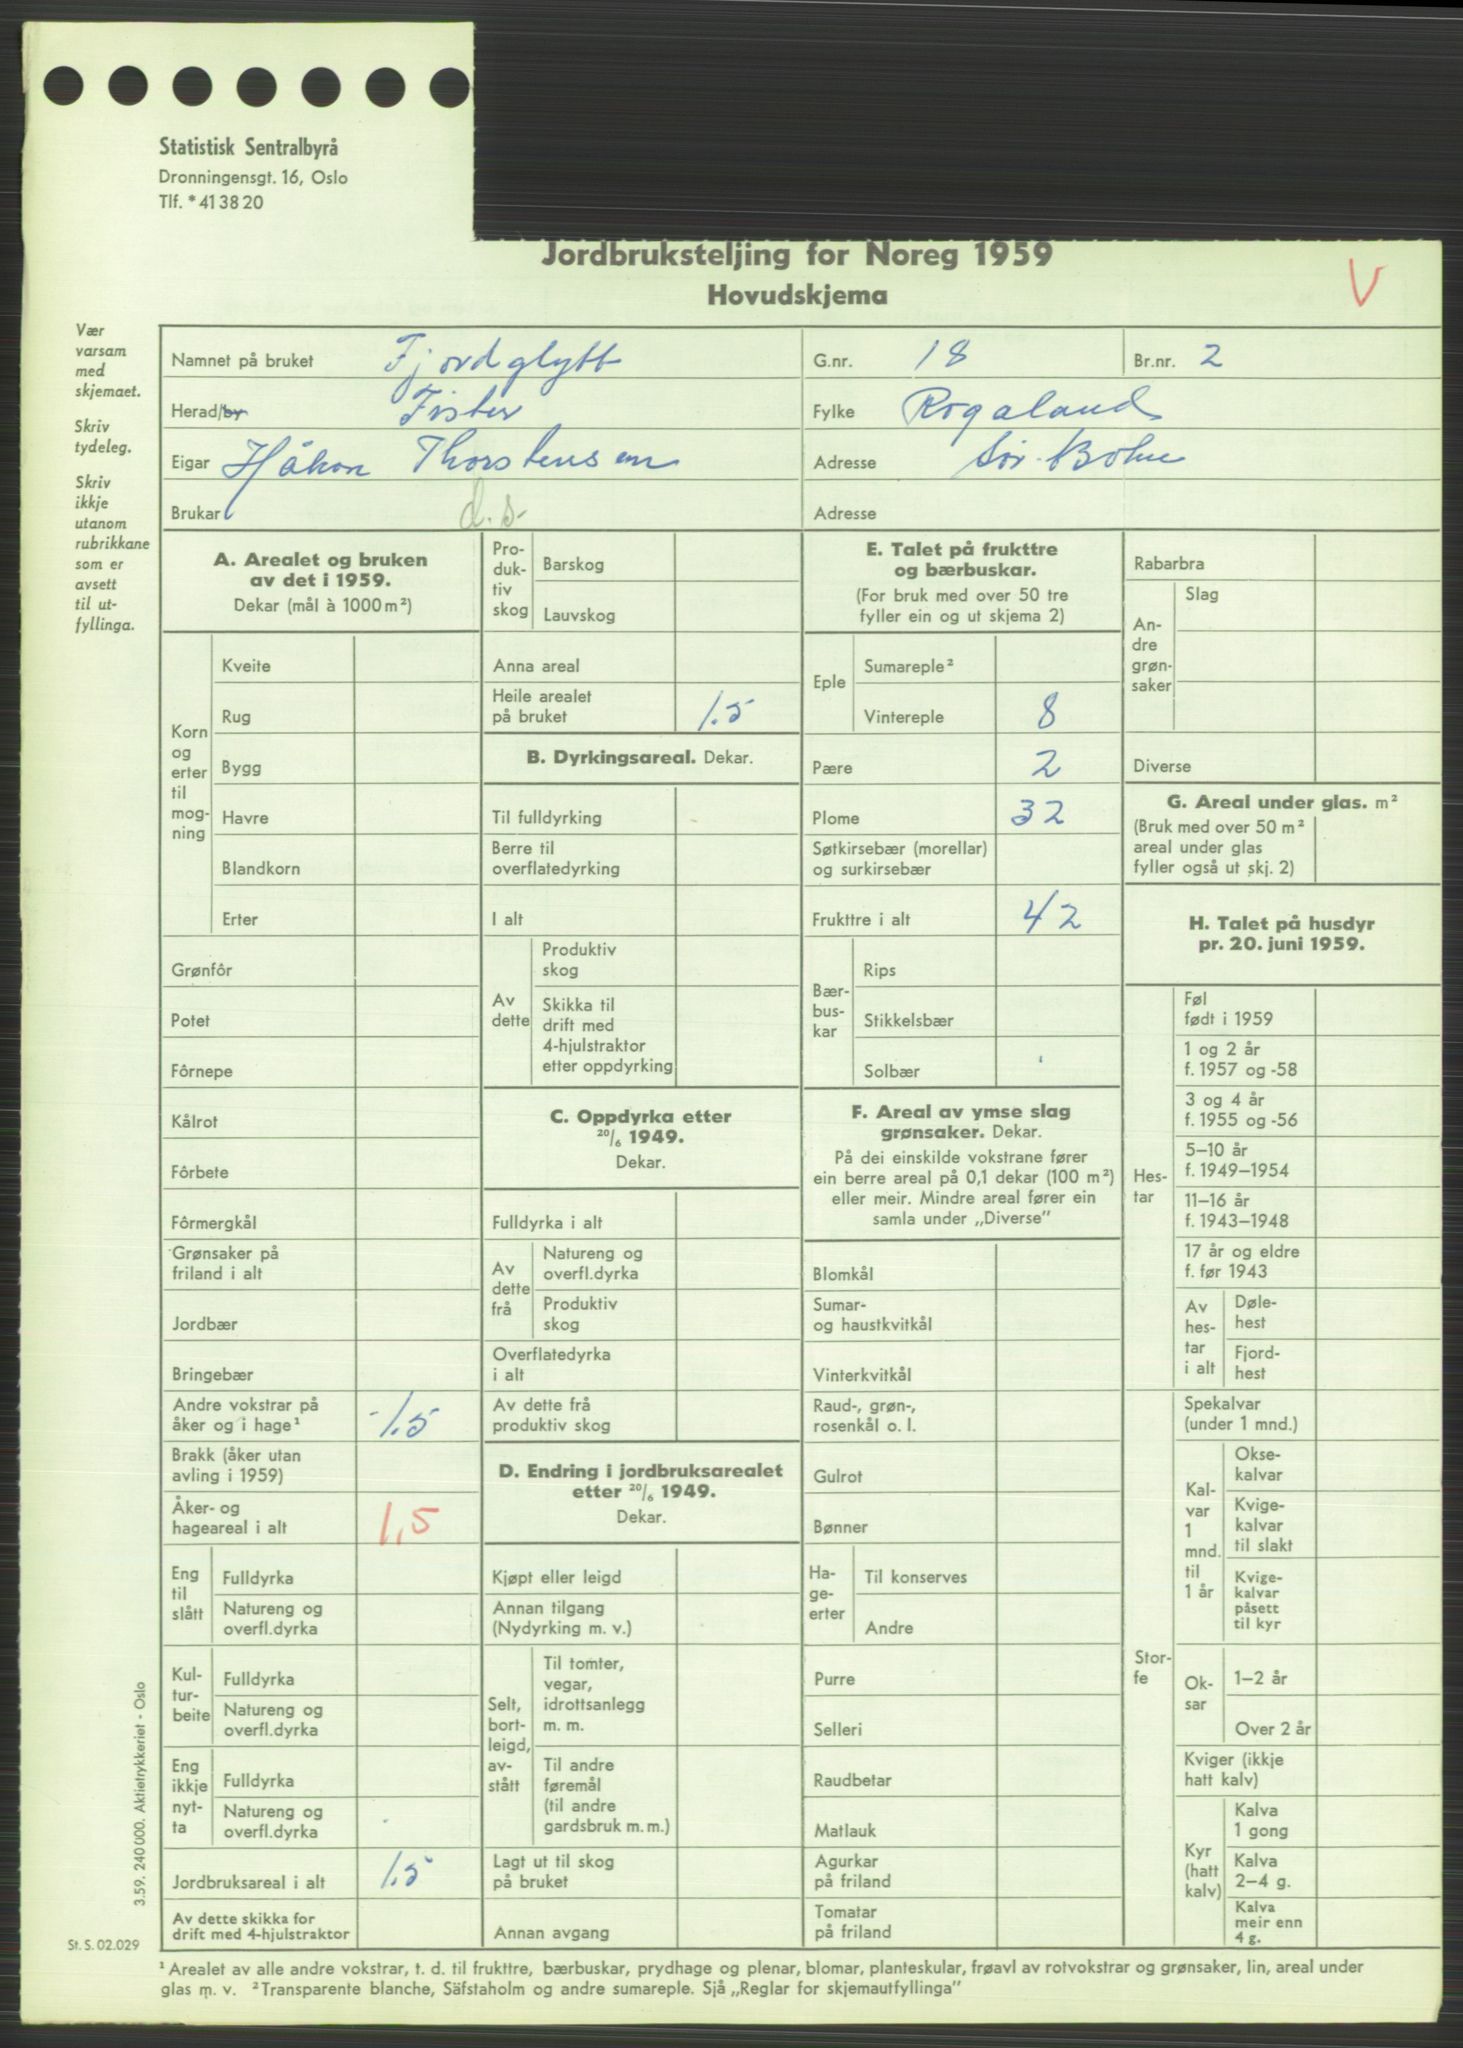 Statistisk Sentralbyrå
Dronningensgt. 16, Oslo
Tlf. *41 38 20
Jordbruksteljing for Noreg 1959
Hovudskjema
V
Vær
varsam
med
skjemaet.
Skriv
tydeleg.
Skriv
ikkje
utanom
rubrikkane
som er
avsett
til ut-
fyllinga.
Namnet på bruket Fjordglytt G.nr. 18 Br.nr. 2
Herad/by Fister Fylke Rogaland
Eigar Håkon Thorstensen Adresse Sør-Bokn
Brukar d.s. Adresse
A. Arealet og bruken
av det i 1959.
Dekar (mål à 1000 m²)
Korn
og
erter
til
mog-
ning
Kveite
Rug
Bygg
Havre
Blandkorn
Erter
Grønfôr
Potet
Fôrnepe
Kålrot
Fôrbete
Fôrmergkål
Grønsaker på
friland i alt
Jordbær
Bringebær
Andre vokstrar på
åker og i hage¹ 1.5
Brakk (åker utan
avling i 1959)
Åker- og
hageareal i alt 1,5
Eng
til
slått
Fulldyrka
Natureng og
overfl.dyrka
Kul-
tur-
beite
Fulldyrka
Natureng og
overfl.dyrka
Eng
ikkje
nyt-
ta
Fulldyrka
Natureng og
overfl.dyrka
Jordbruksareal i alt 1.5
Av dette skikka for
drift med 4-hjulstraktor
Pro-
duk-
tiv
skog
Barskog
Lauvskog
Anna areal
Heile arealet
på bruket 1.5
B. Dyrkingsareal. Dekar.
Til fulldyrking
Berre til
overflatedyrking
I alt
Av
dette
Produktiv
skog
Skikka til
drift med
4-hjulstraktor
etter oppdyrking
C. Oppdyrka etter
20/6 1949.
Dekar.
Fulldyrka i alt
Av
dette
frå
Natureng og
overfl.dyrka
Produktiv
skog
Overflatedyrka
i alt
Av dette frå
produktiv skog
D. Endring i jordbruksarealet
etter 20/6 1949.
Dekar.
Kjøpt eller leigd
Annan tilgang
(Nydyrking m. v.)
Selt,
bort-
leigd,
av-
stått
Til tomter,
vegar,
idrottsanlegg
m. m.
Til andre
føremål
(til andre
gardsbruk m. m.)
Lagt ut til skog
på bruket
Annan avgang
E. Talet på frukttre
og bærbuskar.
(For bruk med over 50 tre
fyller ein og ut skjema 2)
Eple
Sumareple²
Vintereple 8
Pære 2
Plome 32
Søtkirsebær (morellar)
og surkirsebær
Frukttre i alt 42
Bær-
bus-
kar
Rips
Stikkelsbær
Solbær
F. Areal av ymse slag
grønsaker. Dekar.
På dei einskilde vokstrane fører
ein berre areal på 0,1 dekar (100 m²)
eller meir. Mindre areal fører ein
samla under „Diverse”
Blomkål
Sumar-
og haustkvitkål
Vinterkvitkål
Raud-, grøn-,
rosenkål o. l.
Gulrot
Bønner
Ha-
ge-
erter
Til konserves
Andre
Purre
Selleri
Raudbetar
Matlauk
Agurkar
på friland
Tomatar
på friland
Rabarbra
An-
dre
grøn-
saker
Slag
Diverse
G. Areal under glas. m²
(Bruk med over 50 m²
areal under glas
fyller også ut skj. 2)
H. Talet på husdyr
pr. 20. juni 1959.
Hes-
tar
Føl
født i 1959
1 og 2 år
f. 1957 og -58
3 og 4 år
f. 1955 og -56
5–10 år
f. 1949–1954
11–16 år
f. 1943–1948
17 år og eldre
f. før 1943
Av
hes-
tar
i alt
Døle-
hest
Fjord-
hest
Stor-
fe
Spekalvar
(under 1 mnd.)
Kal-
var
1
mnd.
til
1 år
Okse-
kalvar
Kvige-
kalvar
til slakt
Kvige-
kalvar
påsett
til kyr
Ok-
sar
1–2 år
Over 2 år
Kviger (ikkje
hatt kalv)
Kyr
(hatt
kalv)
Kalva
1 gong
Kalva
2–4 g.
Kalva
meir enn
4 g.
3.59. 240 000. Aktietrykkeriet - Oslo
St. S. 02.029
¹ Arealet av alle andre vokstrar, t. d. til frukttre, bærbuskar, prydhage og plenar, blomar, planteskular, frøavl av rotvokstrar og grønsaker, lin, areal under
glas m. v. ² Transparente blanche, Säfstaholm og andre sumareple. Sjå „Reglar for skjemautfyllinga”